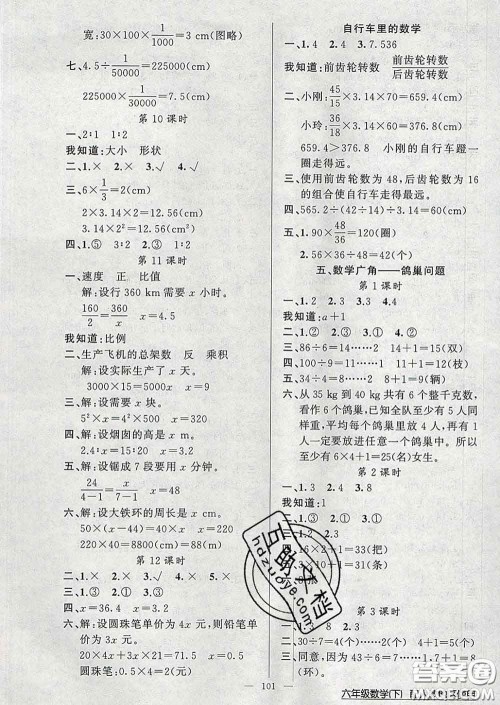 宽:30×100×1/1000=3 cm(图略)
七、4.5÷1/50000=225000(cm)
225000×1/30000=7.5(cm)
第 10 课时
一、2∶1 1∶2
我知道:大小 形状
二、1.× 2.× 3.√ 4.√
三、6×1/3=2(cm)
2×3.14×2=12.56(cm)
3.14×2²=12.56(cm²)
四、1.⑤ 3∶2 2.③ 1∶2
第 11 课时
一、速度 正 比值
解:设行 360 km 需要 x 小时。
160/2=360/x
我知道:比例
二、生产飞机的总架数 反 乘积
解:设实际生产了 x 天。
3000×15=(3000+2000)×x
三、解:设需要 x 块。
5²×x=4²×200 x=128
四、解:设烟囱的高是 x m。
2.4∶x=1.2∶7.5 x=15
五、解:设锯成 7 段要用 x 分钟。
24/4-1=x/7-1 x=48
六、解:设大铁环的周长是 x cm。
50×(x-44)=40x x=220
220×40=8800(cm)=88(m)
第 12 课时
二、1.× 2.× 3.√ 4.√
四、x=36.4 x=3.2
六、解:设圆珠笔单价为 4x 元,则铅笔单
价为 3x 元。
4x×20+3x×21=71.5 x=0.5
圆珠笔:0.5×4=2(元)
自行车里的数学
一、1.4 2.4 3.7.536
我知道:前齿轮转数 前齿轮转数/后齿轮转数
二、小刚:45/15×3.14×70=659.4(cm)
小玲:48/16×3.14×40=376.8(cm)
659.4>376.8 小刚的自行车蹬一
圈走得远。
三、使用前齿轮数为 48,后齿轮数为 16
的组合使自行车走得最远。
四、565.2÷(42÷14)÷3.14=60(cm)
五、1.90×48/36=120(圈)
2.56×36÷48=42(个)
五、数学广角——鸽巢问题
第 1 课时
一、1.3 2.2
我知道:a+1
二、1.① 2.② 3.① 4.①
三、86÷6=14……2 14+1=15(双)
四、100÷9=11……1 11+1=12(枝)
五、34÷4=8……2 8+1=9(辆)
六、从 35 kg 到 40 kg 共有 6 个整千克数,
看作 6 个鸽巢,已知全队至少有 5 人同
样重,平均每个鸽巢里放进 4 人,再有 1
人一定要放进任意一个鸽巢中,所以至
少有 6×4+1=25(名)女生。
第 2 课时
一、1.3 2.4 3.8
我知道:1
二、1.① 2.③ 3.③
三、16×2+1=33(把)
四、10×3+1=31(条)
第 3 课时
二、30÷7=4……2(个) 4+1=5(个)
三、同意,因为 13÷12=1……1,1+1=2
(环)。
101
六年级数学(下)